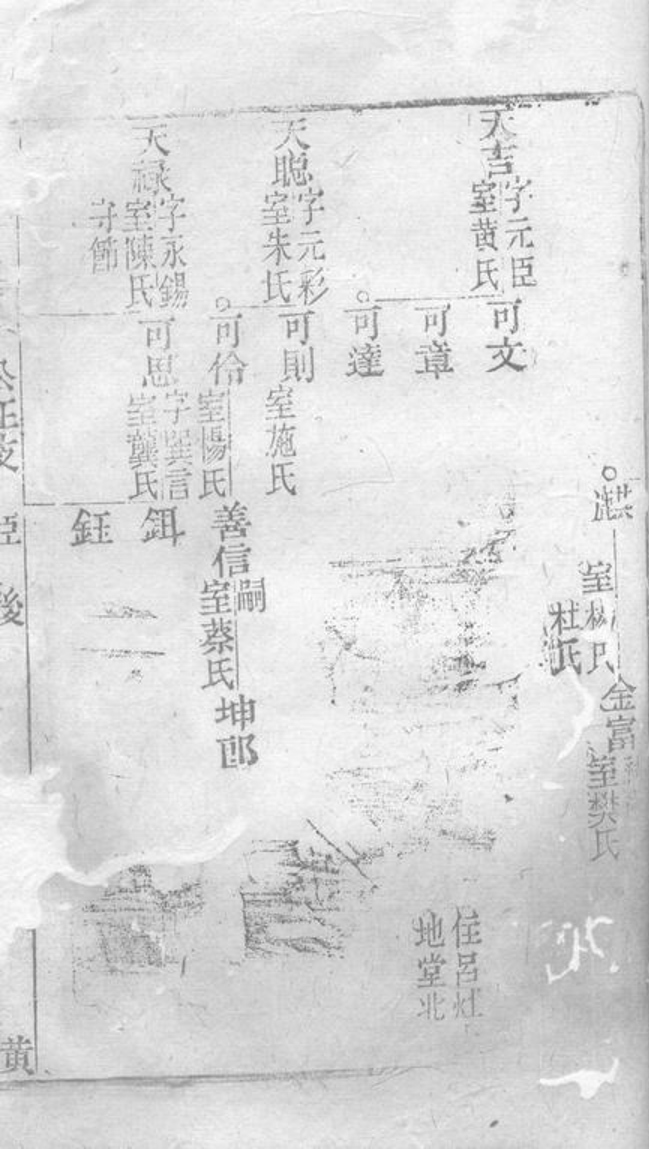 淇
室林氏
杜氏
金富
室樊氏
天吉
字元臣
室黄氏
可文
可章
可達
住呂灶
地堂北
天聰
字元彩
室朱氏
可則
室施氏
可伶
室楊氏
善信
嗣
室蔡氏
坤郎
天祿
字永錫
室陳氏
守節
可思
字巽言
室龔氏
鉺
鈺
後
黄